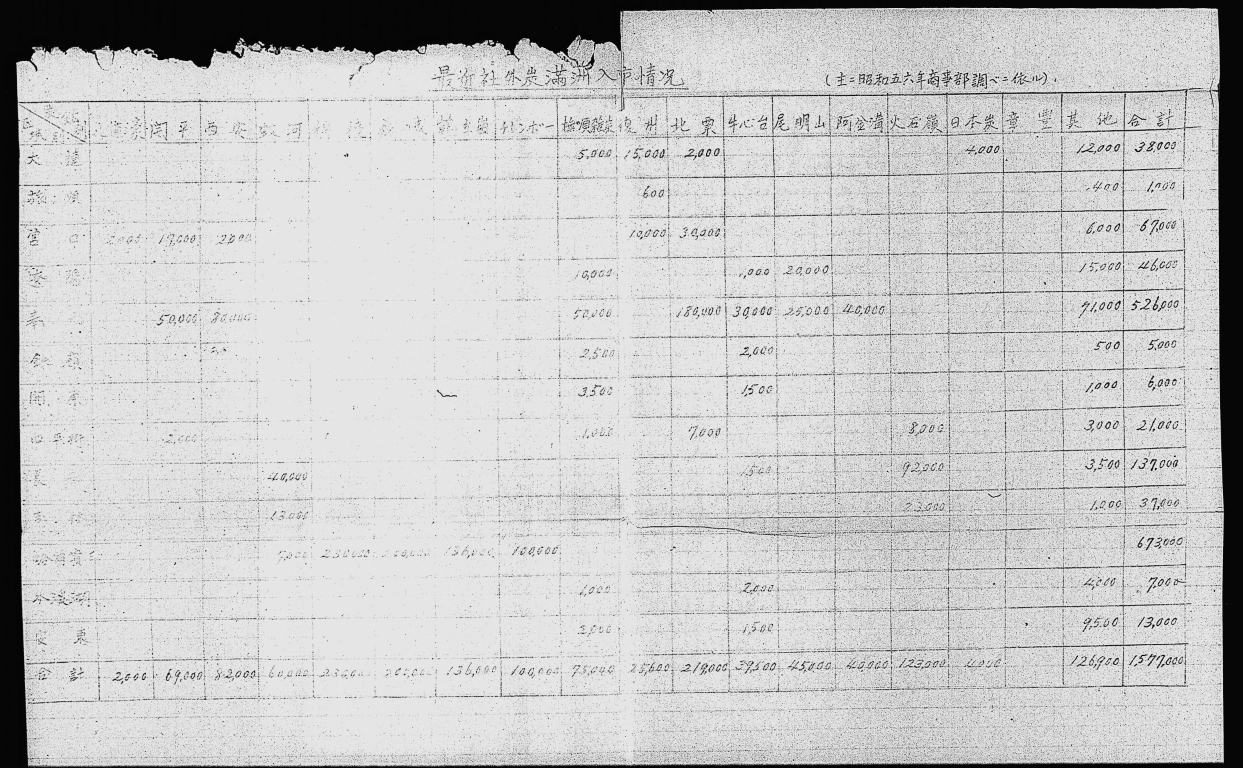 最近社外炭満洲入市情况
(主ニ昭和五六年商事部調ベニ依ル)
開平 西安 蛟河 チチンホー 撿順雑炭 復州 北票 牛心台 尾明山 阿金溝 火石嶺 日本炭 章豐 其他 合計
大連 5,000 15,000 2,000 4,000 12,000 38,000
旅順 600 400 1,000
営口 2,000 17,000 2,000 10,000 30,000 6,000 67,000
遼陽 10,000 1,000 20,000 15,000 46,000
奉天 50,000 80,000 50,000 180,000 30,000 25,000 40,000 71,000 526,000
鉄嶺 2,500 2,000 500 5,000
開原 3,500 1,500 1,000 6,000
四平街 2,000 1,000 7,000 8,000 3,000 21,000
長 40,000 1,500 92,000 3,500 137,000
吉林 13,000 23,000 1,000 37,000
哈爾賓 7,000 230,000 200,000 136,000 100,000 673,000
本渓湖 1,000 2,000 4,000 7,000
安東 2,000 1,500 9,500 13,000
合計 2,000 69,000 82,000 60,000 230,000 200,000 136,000 100,000 75,000 25,600 219,000 39,500 45,000 40,000 123,000 4,000 126,900 1,577,000